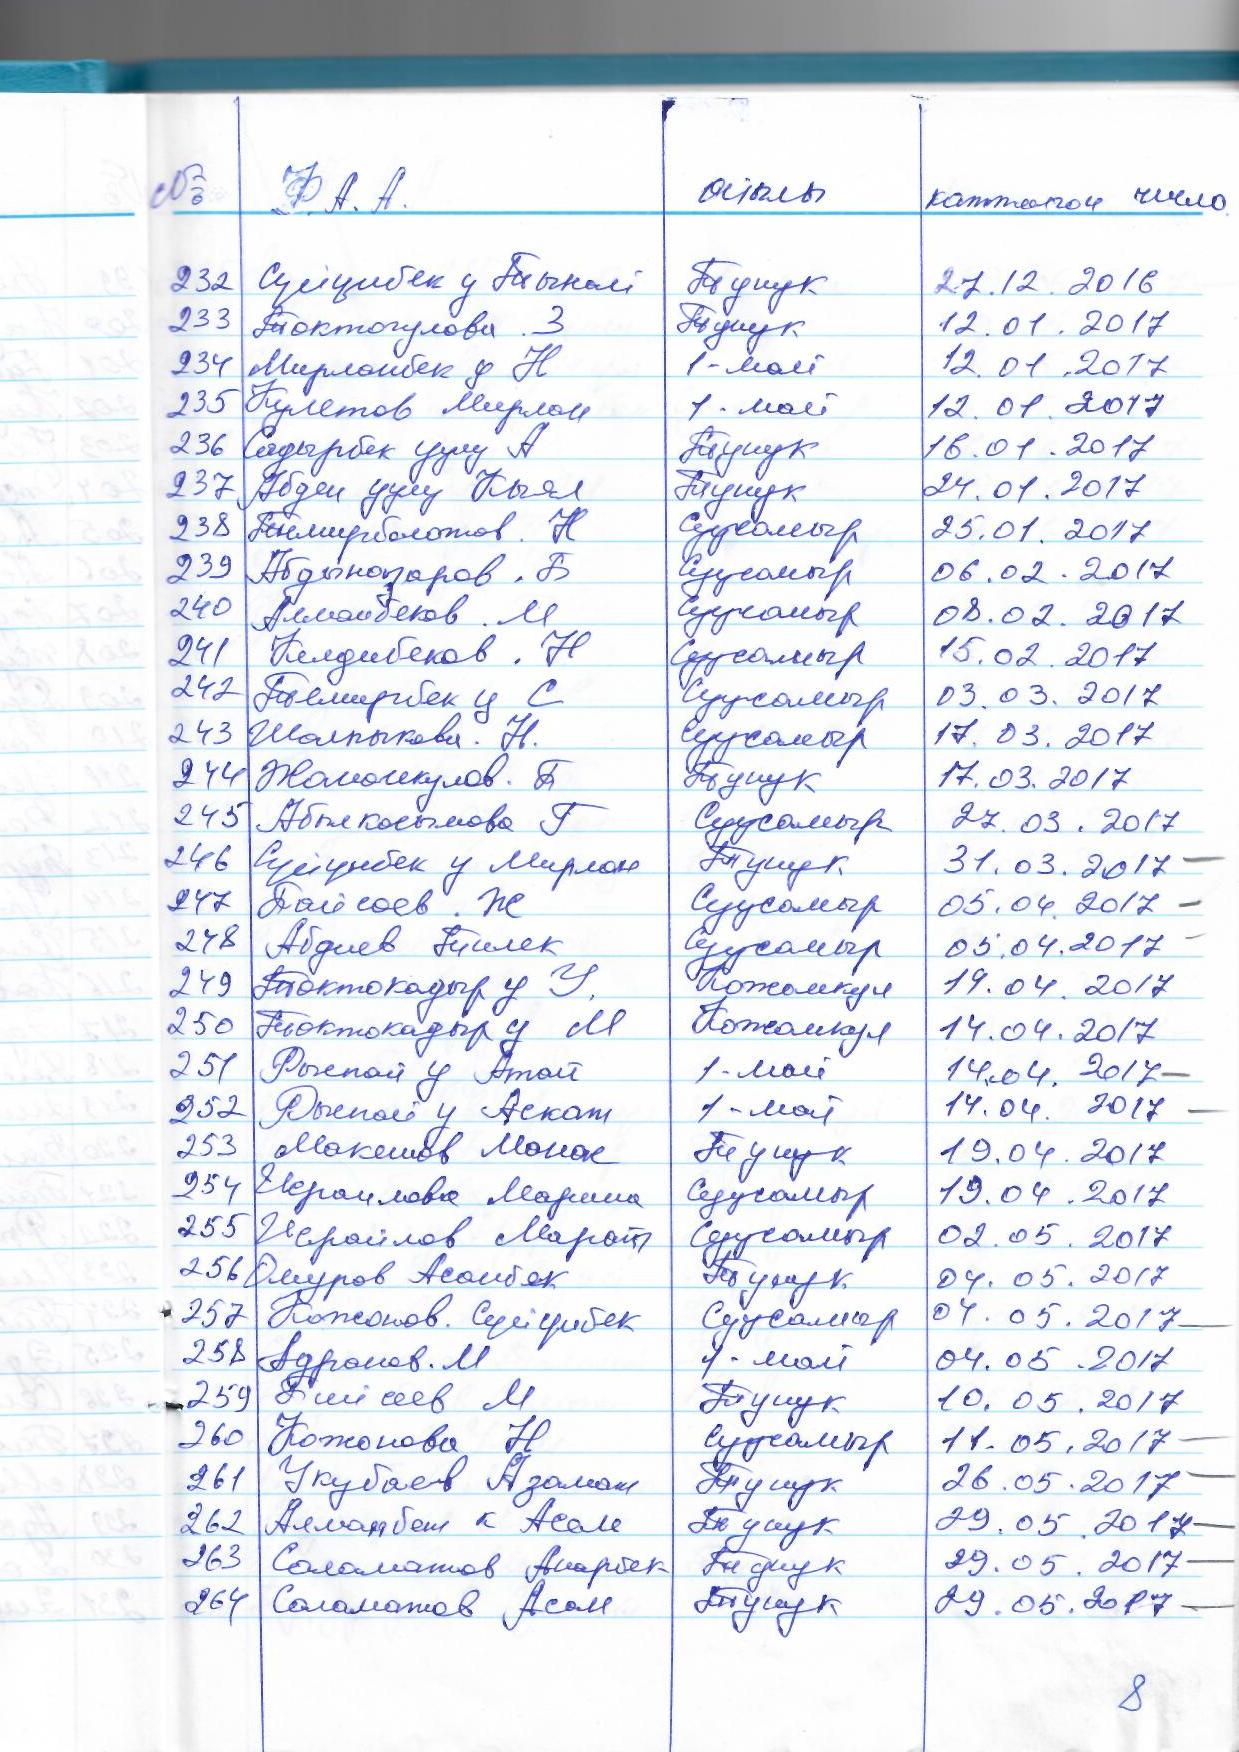 № Ф.А.А. айылы катталган число
232 Сүйүнбек у Тынай Тунук 27.12.2016
233 Токтогулова. З Тунук 12.01.2017
234 Мирланбек у Н 1-май 12.01.2017
235 Кулетов Мирлан 1-май 12.01.2017
236 Садырбек уулу А Тунук 16.01.2017
237 Абдеи уулу Кыял Тунук 24.01.2017
238 Темирболотов. Н Суусамыр 25.01.2017
239 Абдыназаров. Б Суусамыр 06.02.2017
240 Алманбеков. М Суусамыр 08.02.2017
241 Келдибеков. Н Суусамыр 15.02.2017
242 Темирбек у С Суусамыр 03.03.2017
243 Шалпыкова. Н. Суусамыр 17.03.2017
244 Жаманкулов. Б Тунук 17.03.2017
245 Абылкасымова Г Суусамыр 27.03.2017
246 Сүйүнбек у Мирлан Тунук 31.03.2017 —
247 Байсаев. Ж Суусамыр 05.04.2017 -
248 Абдиев Тилек Суусамыр 05.04.2017 -
249 Токтокадыр у У. Кожомкул 14.04.2017
250 Токтокадыр у М Кожомкул 14.04.2017
251 Рыспай у Атай 1-май 14.04.2017 —
252 Рыспай у Аскат 1-май 14.04.2017 —
253 Макешов Манас Тунук 19.04.2017
254 Исраилова Марина Суусамыр 19.04.2017
255 Исраилов Марат Суусамыр 02.05.2017
256 Омуров Асанбек Тунук 04.05.2017
257 Кожонов. Сүйүнбек Суусамыр 04.05.2017 —
258 Адранов. М 1-май 04.05.2017
259 М Тунук 10.05.2017
260 Кожонова Н Суусамыр 11.05.2017 —
261 Укубаев Азамат Тунук 26.05.2017 —
262 Алманбет к Асел Тунук 29.05.2017 —
263 Саламатов Анарбек Тунук 29.05.2017 —
264 Саламатов Асан Тунук 29.05.2017 —
8